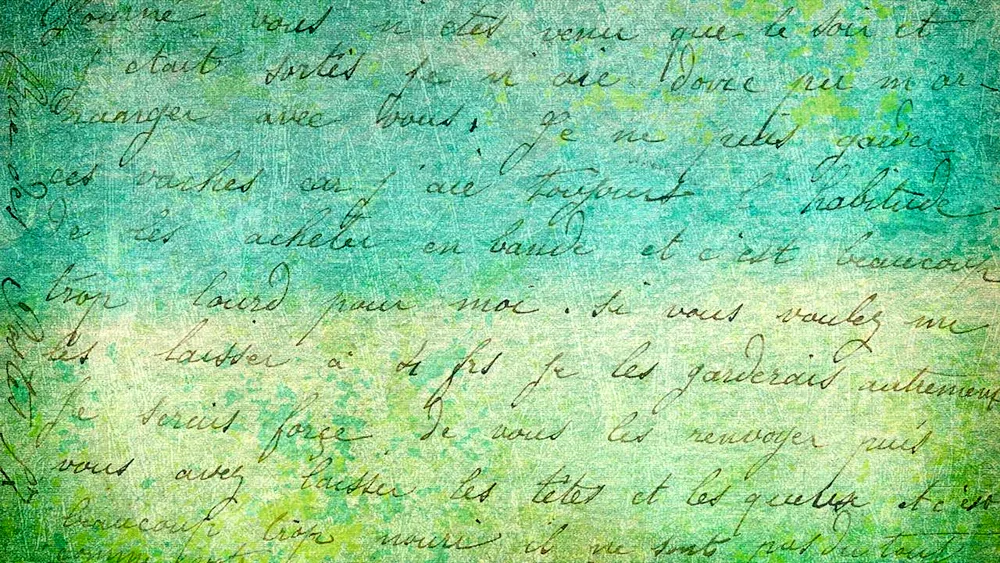 vous n etes venu que le soir et
j etait sortés je n aie donc pu m ar-
ranger avec vous. Je ne puis garder
ces vaches car j aie toujours l habitude
de les acheter en bande et c'est beaucoup
trop lourd pour moi. si vous voulez me
les laisser à frs je les garderais autrement
je serais forçe de vous les renvoyer puis
vous avez laisser les têtes et les queux et c'est
beaucoup trop nouri il ne sont pas du tout
comme